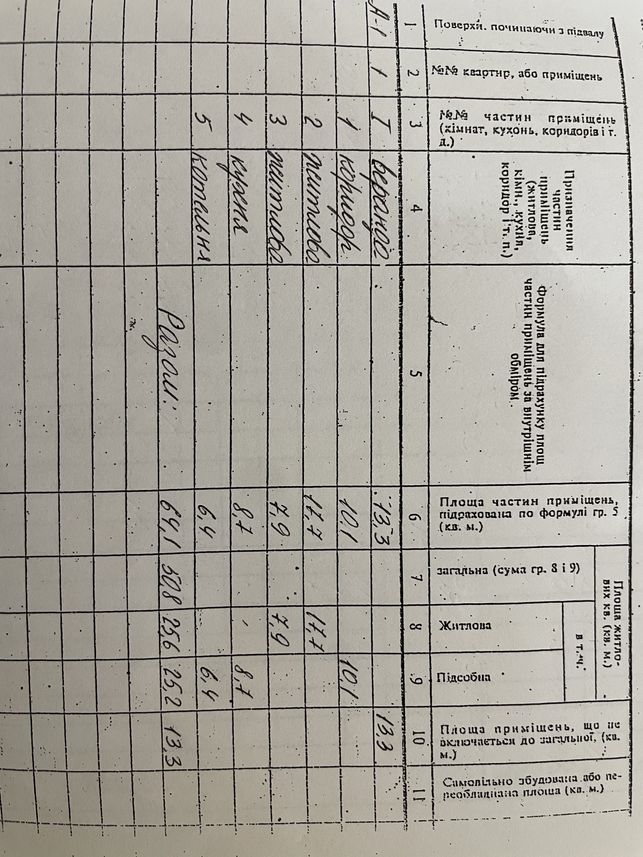 Поверхи. починаючи з підвалу
№№ квартир, або приміщень
№№ частин приміщень (кімнат, кухонь, коридорів і т. д.)
Призначення частин приміщень (житлова, кімн., кухня, коридор і т. п.)
Формула для підрахунку площ частин приміщень за внутрішнім обміром.
Площа частин приміщень, підрахована по формулі гр. 5 (кв. м.)
Площа житлових кв. (кв. м.)
загальна (сума гр. 8 і 9)
в т.ч.
Житлова
Підсобна
Площа приміщень, що не включається до загальної, (кв. м.)
Самовільно збудована або переобладнана площа (кв. м.)
1 2 3 4 5 6 7 8 9 10 11
А-1 1 I веранда 13,3 13,3
1 коридор 10,1 10,1
2 житлова 17,7 17,7
3 житлова 7,9 7,9
4 кухня 8,7 8,7
5 котельня 6,4 6,4
Разом: 64,1 50,8 25,6 25,2 13,3